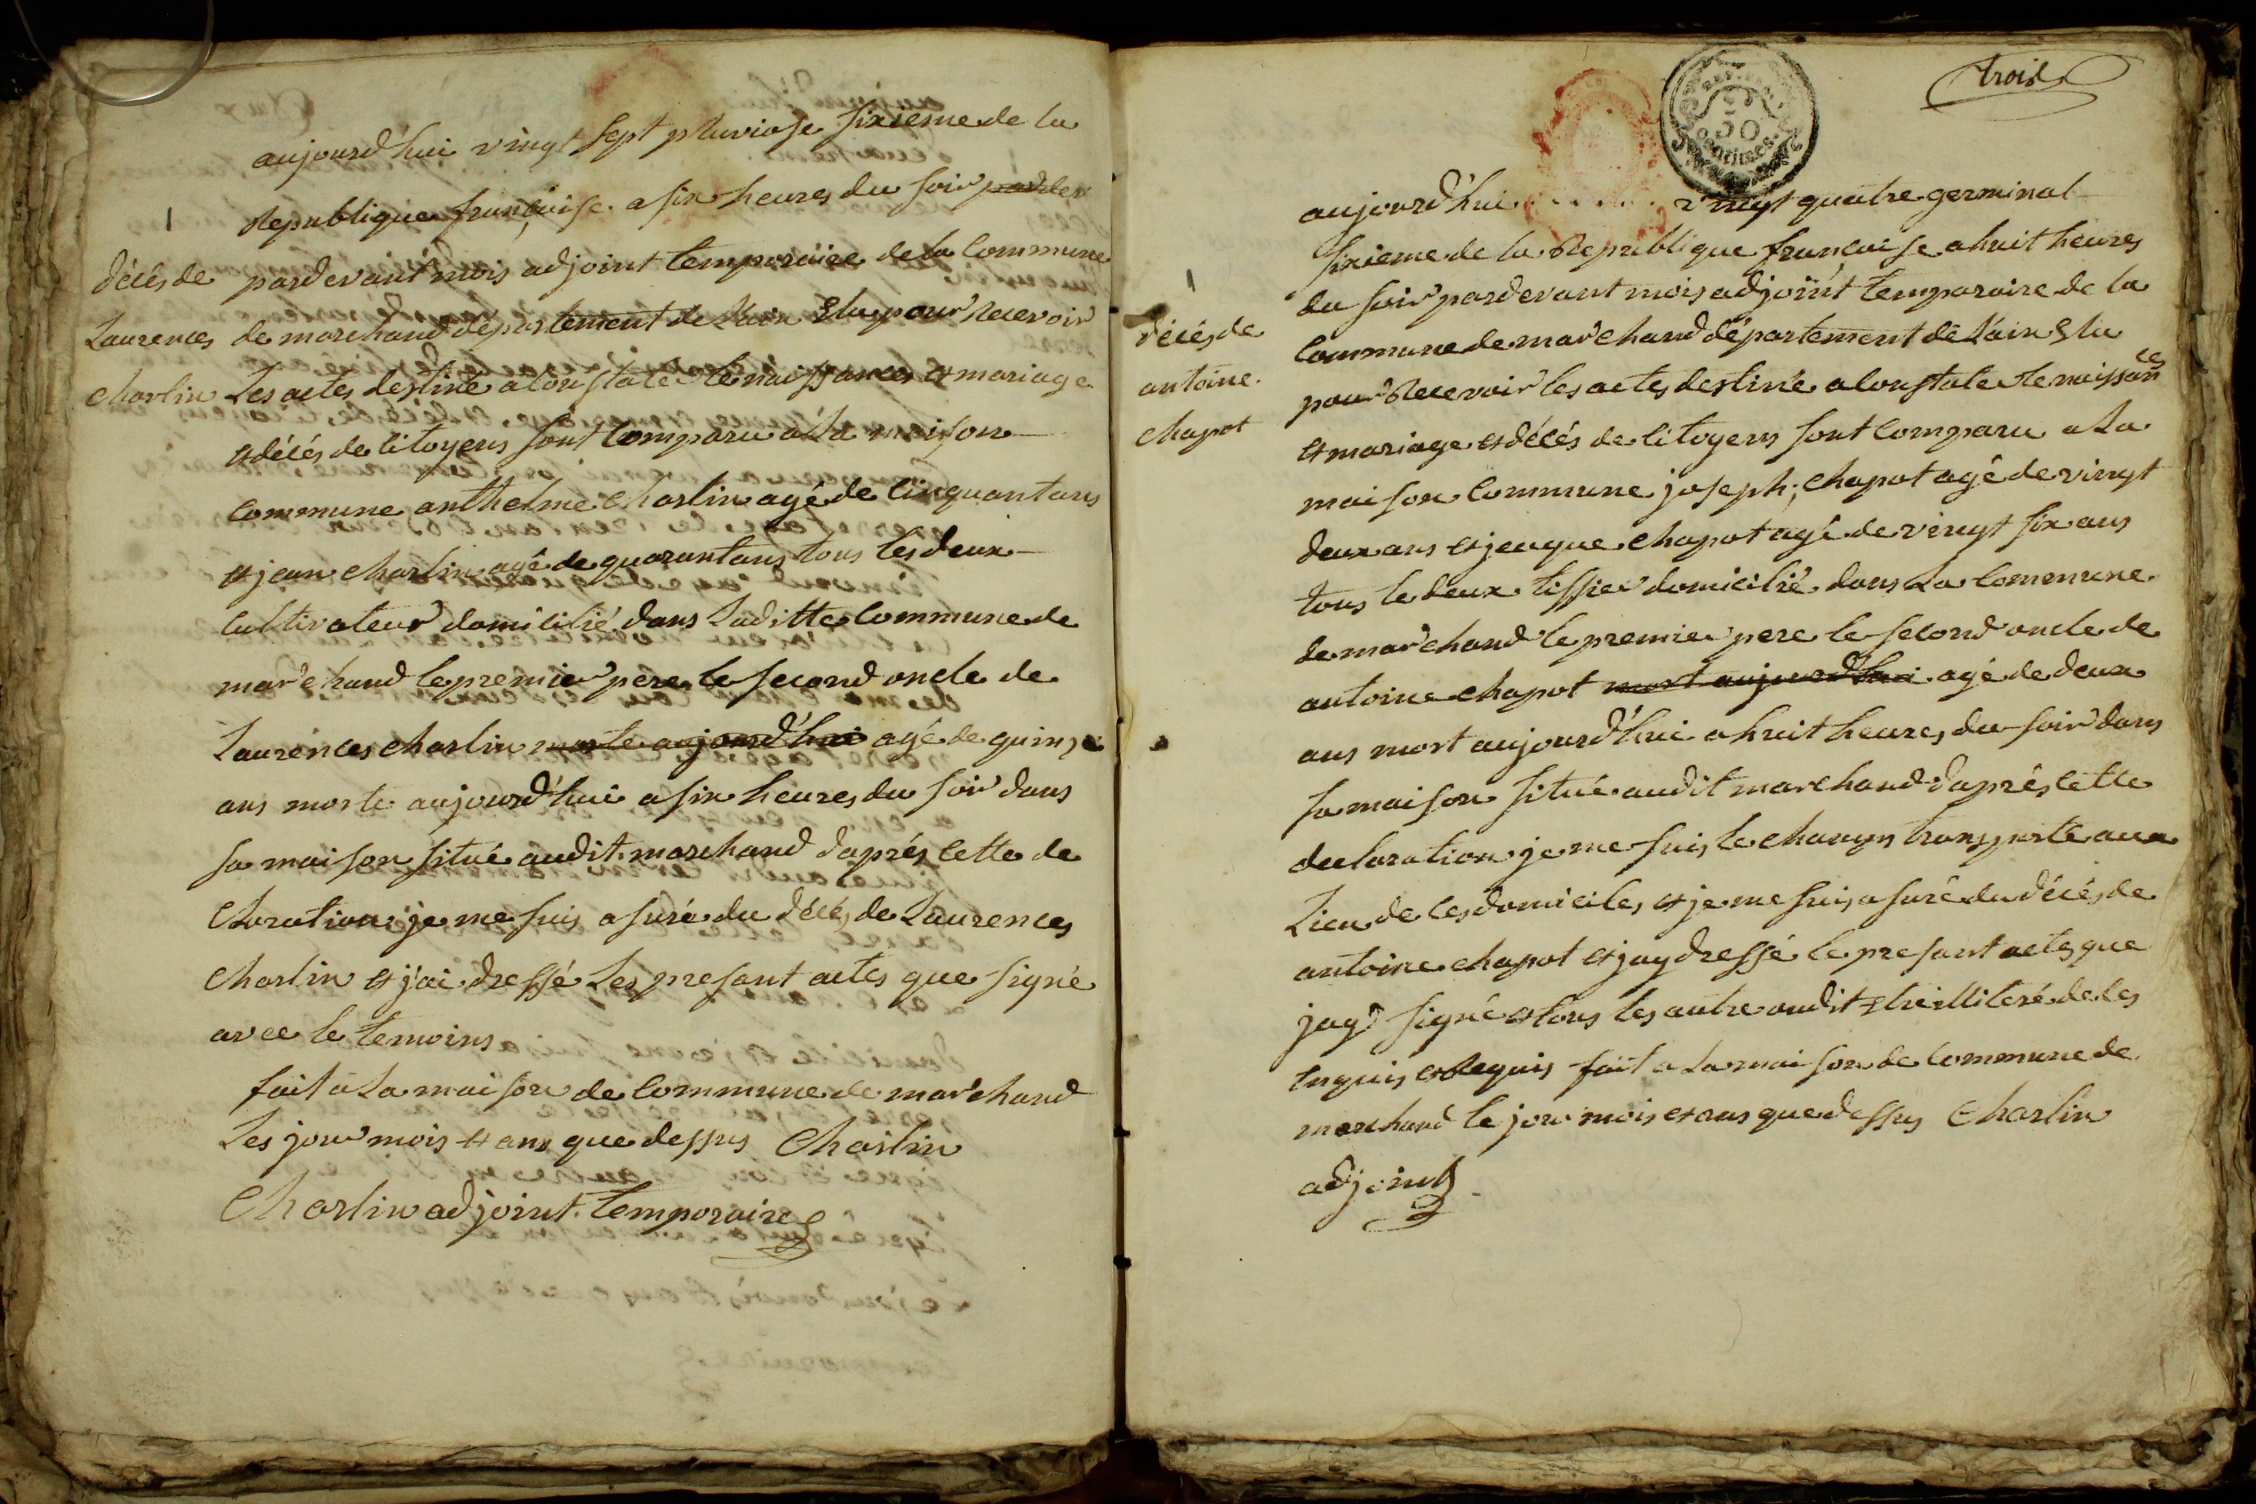 aujourd'hui vingt sept pluviose sixieme de la
Republique françoise a six heures du soir pardev
décès de
Laurences
Charlin
pardevant mois adjoint temporaiire de la Commune
de marchand departement de Lain Elu pour Recevoir
Les actes destiné a constate le naissances et mariage
et décès de citoyens sont Comparu a La maison
commune anthelme Charlin agé de cinquantans
et jean Charlin agé de quarantans tous les deux
Cultivateur domicilié dans Laditte Commune de
marchand le premier pere le second oncle de
Laurences Charlin morte aujourd'hui agé de quinze
ans morte aujourd'hui a six heures du soir dans
sa maison situé audit marchand daprés cette de
claration je me suis asuré du décés de Laurences
Charlin et j'ai dressé Les presant actes que signé
avec le temoins
fait a La maison de Commune de marchand
Les jour mois et ans que dessus Charlin
Charlin adjoint temporaire
trois
50
centimes
décés de
antoine
Chapot
aujourd'hui . . . . . . vingt quatre germinal
sixieme de la Republique françoise a huit heures
du soir pardevant mois adjoint temporaire de la
Commune de marchand département de Lain Elu
pour Recevoir les actes destiné a Constate le naissan ces
et mariage et décés de citoyens sont Comparu a La
maison Commune joseph; Chapot agé de vingt
deux ans et jeaque Chapot agé de vingt six ans
tous le deux tissier domicilié dans La Commune
de marchand le premier pere le second oncle de
antoine Chapot mort aujourd'hui agé de deux
ans mort aujourd'hui a huit heures du soir dans
sa maison situé audit marchand daprés cette
declaration je me suis le champs transporté aux
Lieu de ces domiciles et je me suis asuré du décés de
antoine Chapot et jay dressé le presant actes que
jay signé et tous les autre audit etre illiteré de les
enquis et Requis fait a La maison de Commune de
marchand le jour mois et ans que dessus Charlin
adjoint